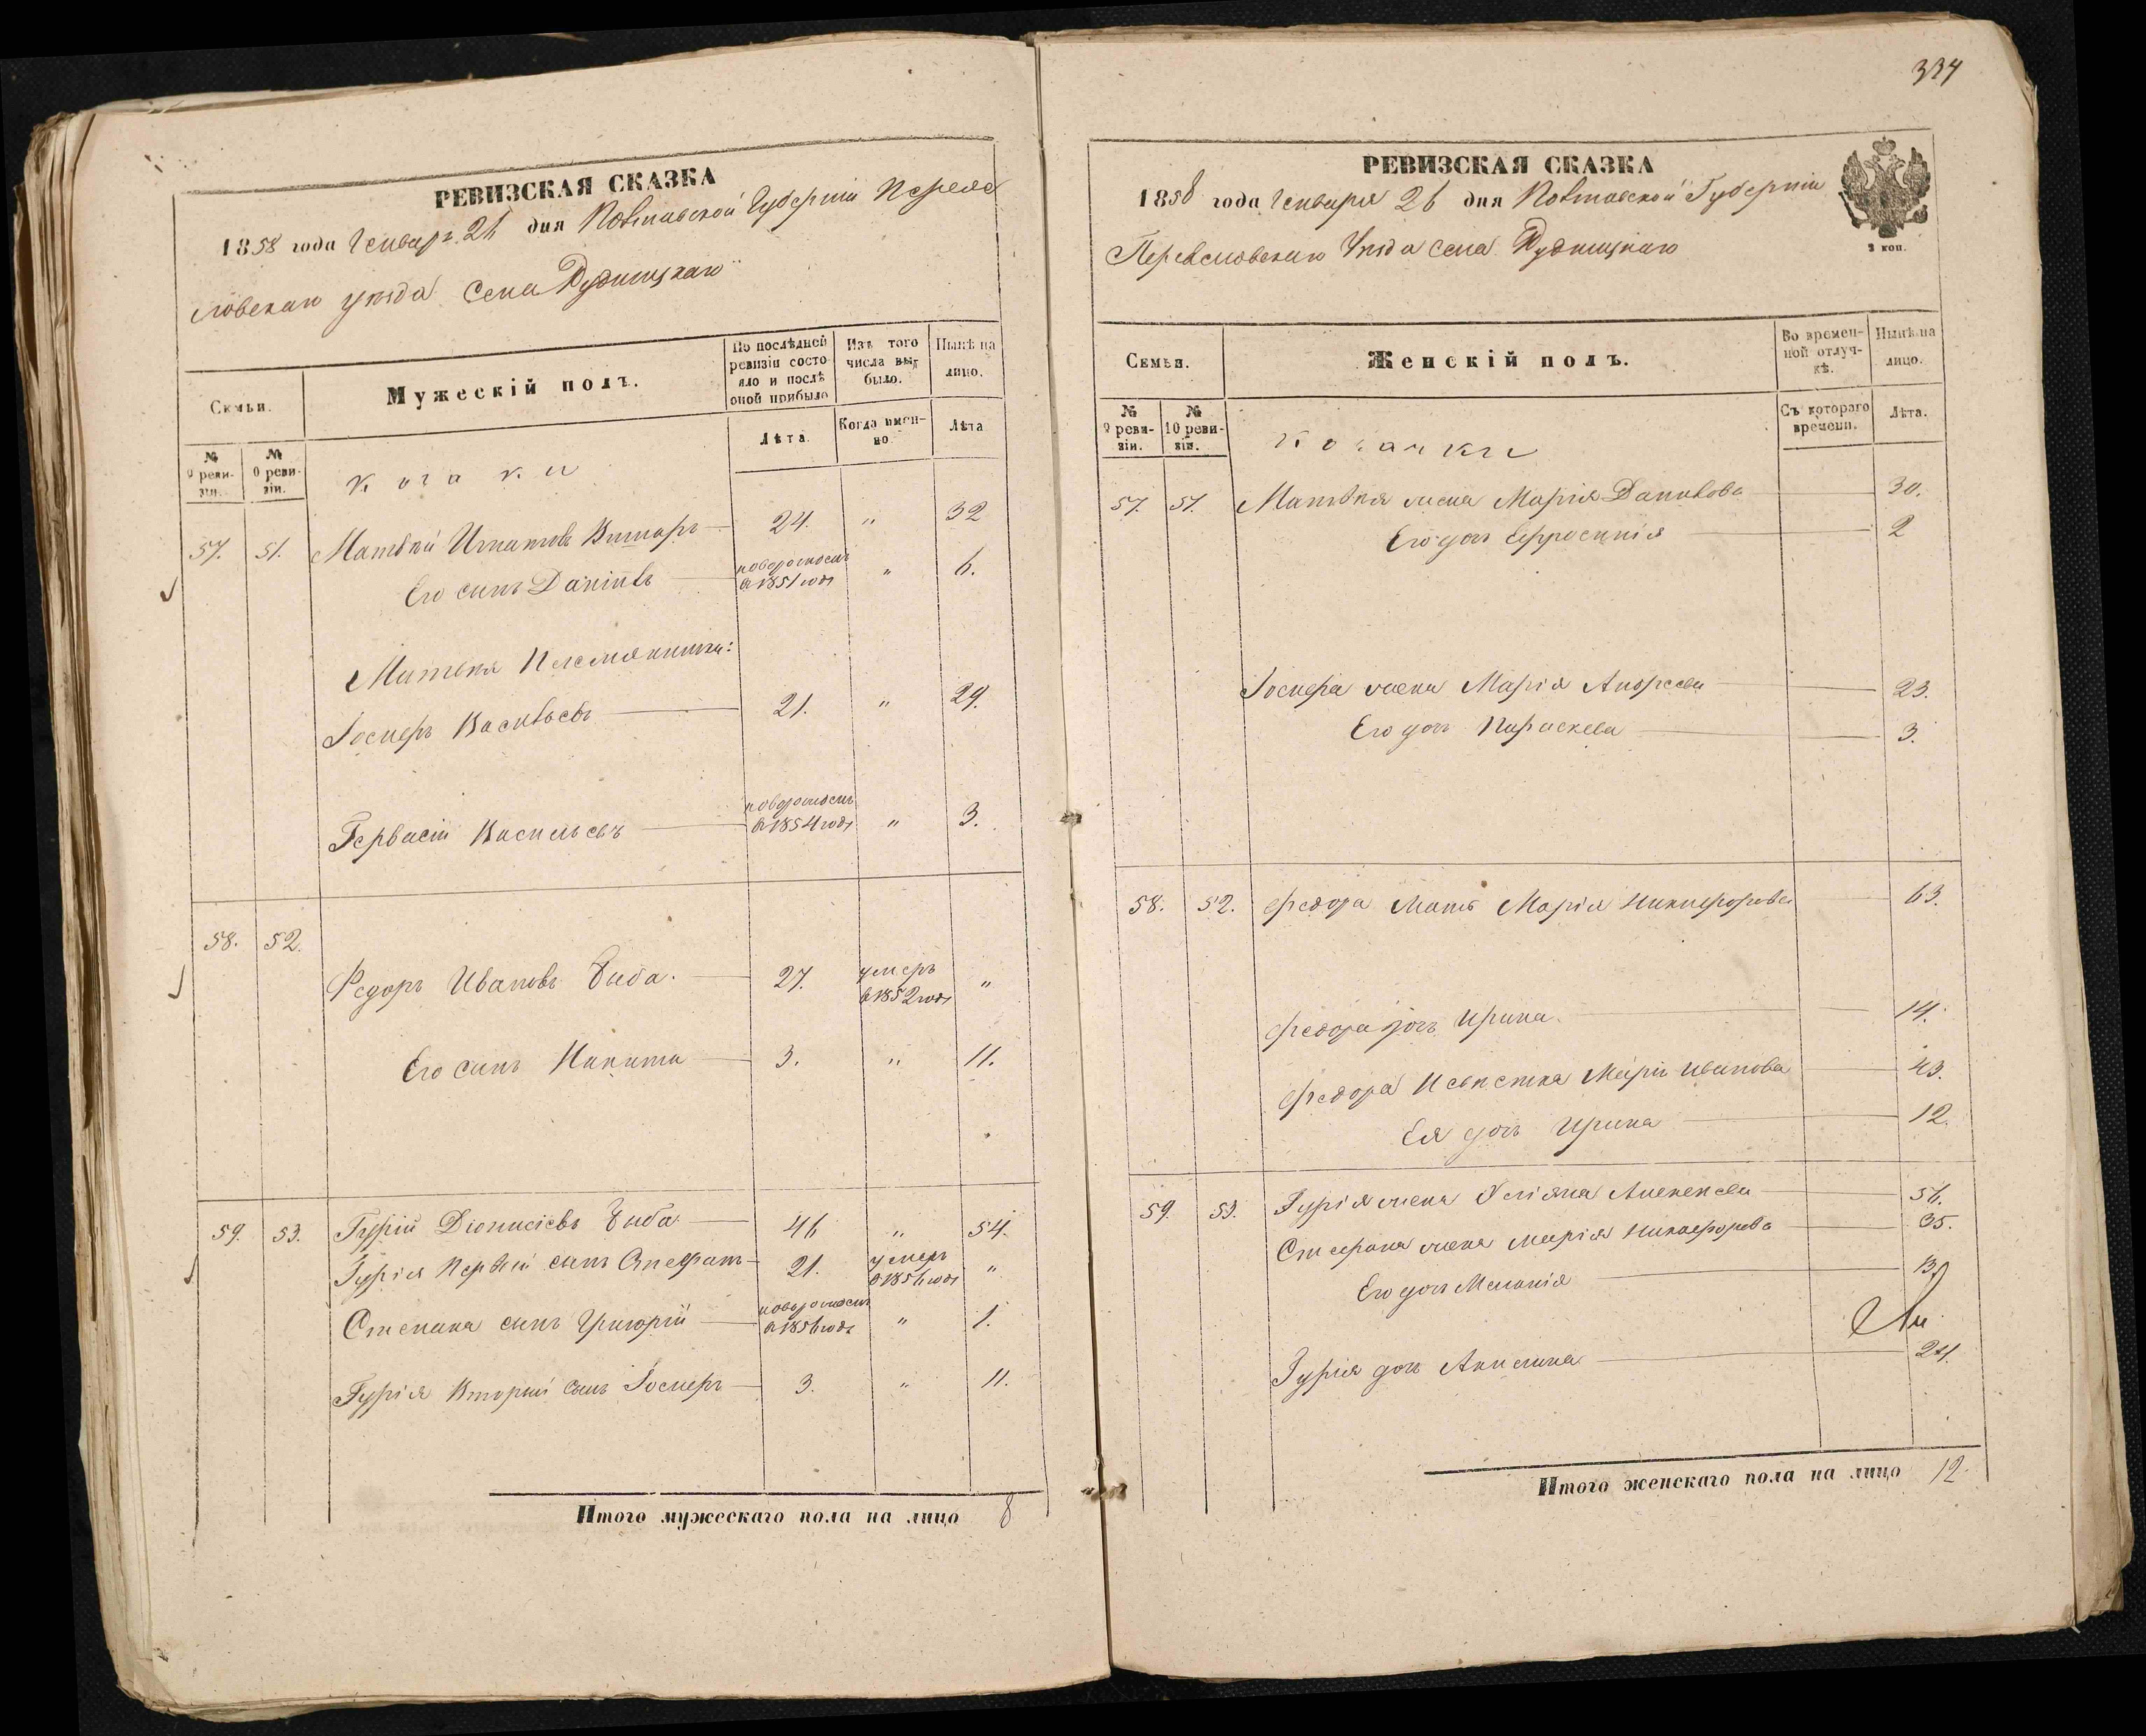 РЕВИЗСКАЯ СКАЗКА
1858 года Генваря 26 дня Полтавской Губерніи Переяс
ловскаго уезда Села Рудницкаго
Семьи.
Мужескій полъ.
По послѣдней ревизіи состояло и послѣ оной прибыло
Изъ того числа выбыло.
Нынѣ на лицо.
Лѣта.
Когда именно.
Лѣта
№ 9 ревизіи.
№ 10 ревизіи.
Козаки
57. 51. Матвѣй Игнатовъ 24. " 32
Его сынъ Даніилъ новорожденъ в 1851 годѣ " 6.
Матвѣя Племянники:
Госиеръ Васильевъ 21. " 29.
Гервасій Васильевъ новорожденъ в 1854 годѣ " 3.
58. 52.
Федоръ Ивановъ Быба. 27. умеръ в 1852 годѣ "
Его сынъ Никита 3. " 11.
59. 53. Гурій Діонисіевъ Быба. 46 " 54.
Гурія Первый сынъ Стефанъ 21. умеръ в 1856 годѣ "
Степана сынъ Григорій новорожденъ в 1856 годѣ " 1.
Гурія Вторый сынъ Госиеръ 3. " 11.
Итого мужескаго пола на лицо 8
334
РЕВИЗСКАЯ СКАЗКА
1858 года Генваря 26 дня Полтавской Губерніи
Переясловскаго Уезда Села Рудницкаго
3 коп.
Семьи.
Женскій полъ.
Во временной отлучкѣ.
Нынѣ на лицо.
Съ котораго времени.
Лѣта.
№ 9 ревизіи.
№ 10 ревизіи.
Козачки
57. 51. Матвѣя жена Марія Данилова 30.
Его дочь Ефросинія 2
Госиера жена Марія Андреева 23.
Его дочь Параскева 3.
58. 52. Федора Мать Марія Никифорова 63.
Федора дочь Ирина. 14.
Федора Невѣстка Марія Иванова 43.
Ея дочь Ирина 12.
59. 53. Гурія жена Уліяна Алексеева 56.
Стефана жена Марія Никифорова 35.
Его дочь Меланія 13
Гурія дочь Акилина 24.
Итого женскаго пола на лицо 12.